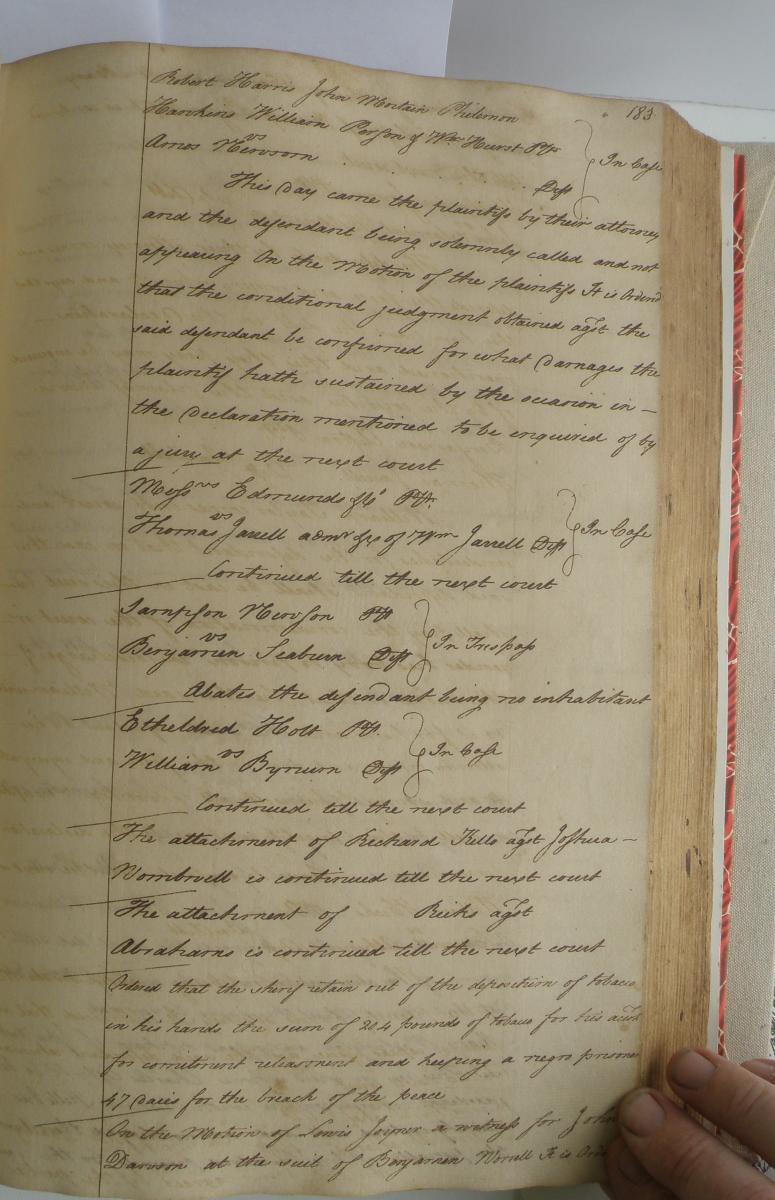 183
Robert Harris John Mortain Philemon
Hawkins William Person & Wm Hurst Plts
vs
Amos Newsom Deft
In Case
This Day came the plaintifs by their attorney
and the defendant being solemnly called and not
appearing On the Motion of the plaintifs It is Orderd
that the conditional judgment obtained agst the
said defendant be confirmed for what Damages the
plaintif hath sustained by the occasion in –
the Declaration mentioned to be enquired of by
a jury at the next court
Messrs Edmunds &c Plt.
vs
Thomas Jarrell admr &c of Wm Jarrell Deft
In Case
Continued till the next court
Sampson Newson Plt
vs
Benjamen Seaburn Deft
In Trespass
Abates the defendant being no inhabitant
Etheldred Holt Plt.
vs
William Bynum Deft
In Case
Continued till the next court
The attachment of Richard Kello agst Joshua –
Wombwell is continued till the next court
The attachment of Ricks agst
Abrahams is continued till the next court
Ordered that the sherif retain out of the deposition of tobacco
in his hands the sum of 204 pounds of tobaco for his
for comitment releasment and keeping a negro prisoner
47 Daies for the breach of the peace
On the Motion of Lewis Joyner a witness for John
Dawson at the suit of Benjamen Worrell It is